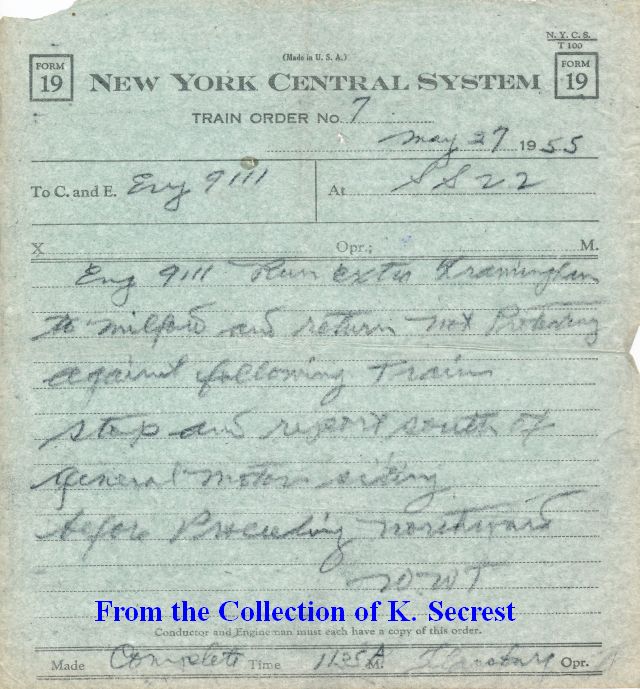 N.Y.C.S.
T 100
(Made in U. S. A.)
FORM 19
NEW YORK CENTRAL SYSTEM
FORM 19
TRAIN ORDER No. 7
May 27 1955
To C. and E. Eng 9111 At SS 22
X Opr.; M.
Eng 9111 Run extra Framingham
to Milford and return not Protecting
against following Trains
stop and report south of
General Motors siding
before Proceeding northward
W.W.T
From the Collection of K. Secrest
Conductor and Engineman must each have a copy of this order.
Made Complete Time 1135 A M. Opr.